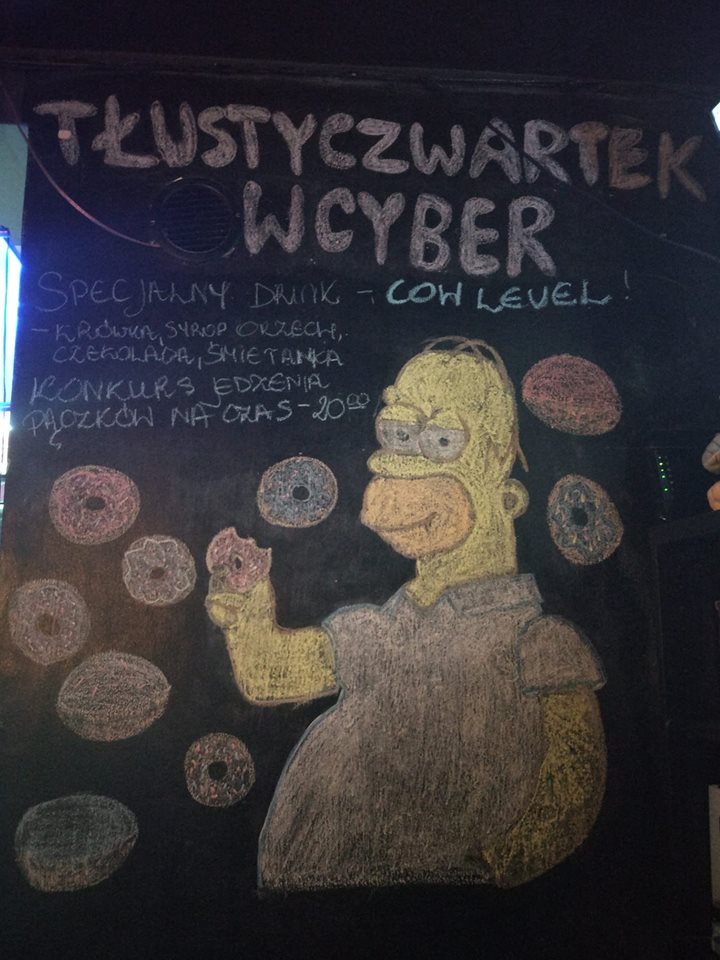 TŁUSTY CZWARTEK
W CYBER
SPECJALNY DRINK - COW LEVEL!
- KRÓWKA, SYROP ORZECH.,
CZEKOLADA, ŚMIETANKA
KONKURS JEDZENIA
PĄCZKÓW NA CZAS - 20⁰⁰